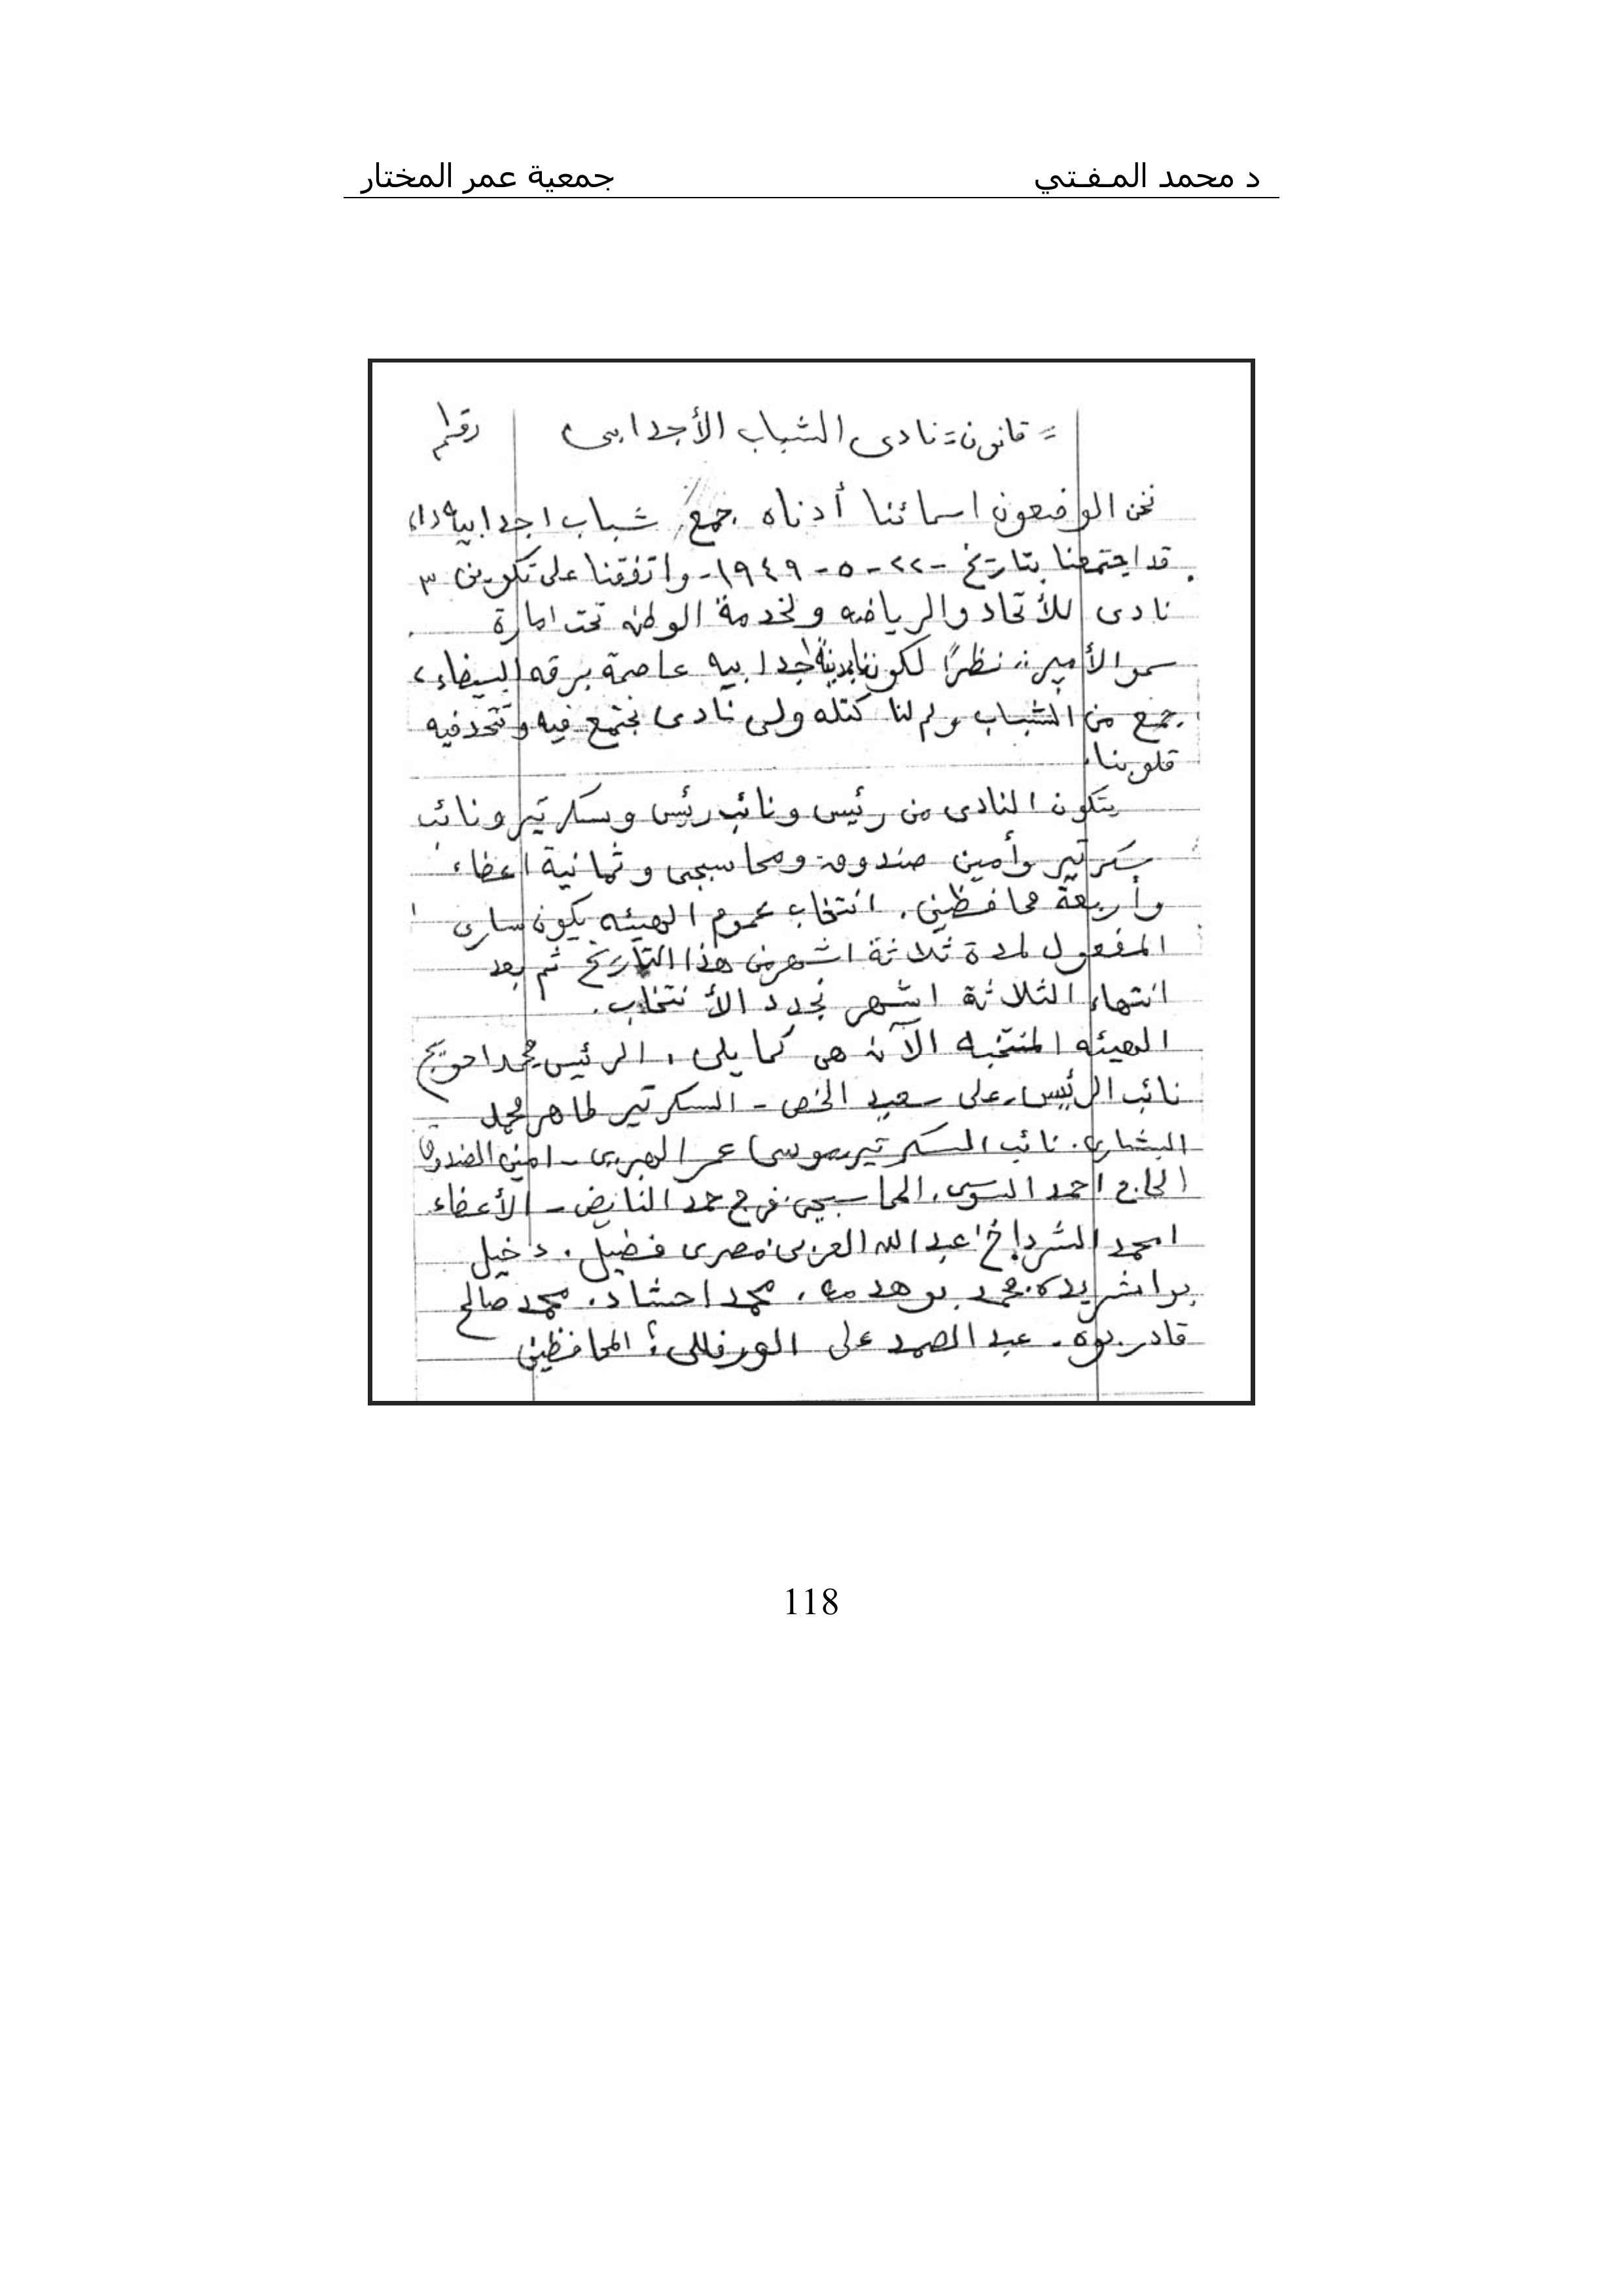 د محمد المـفـتي جمعية عمر المختار
= قانون = نادى الشباب الأجدابى
نحن الوضعون اسمائنا أدناه جمع شباب اجدابيه
قد اجتمعنا بتاريخ - ٢٢ - ٥ - ١٩٤٩ - واتفقنا على تكوين
نادى للأتحاد والرياضه ولخدمة الوطن تحت امارة
سمو الأمير نظرًا لكون اجدابيه عاصمة برقه البيضاء
جمع من الشباب ولم لنا كتله ولى نادى نجتمع فيه وتتحد فيه
قلوبنا.
يتكون النادى من رئيس ونائب رئيس وسكرتير ونائب
سكرتير وأمين صندوق ومحاسبجى وثمانية اعضاء
وأربعة محافظين. انتخاب عموم الهيئه يكون سارى
المفعول لمدة ثلاثة اشهر من هذا التاريخ ثم بعد
انتهاء الثلاثة اشهر نجدد الأنتخاب.
الهيئه المنتخبه الآن هى كما يلى. الرئيس محمد احويج
نائب الرئيس. على سعيد الخص - السكرتير طاهر محمد
البشارى. نائب السكرتير موسى عمر - امين الصندوق
الحاج احمد السوسى. المحاسبجى فرج حمد النايض - الأعضاء
امحمد الشرداخ عبدالله العزبى مصرى فضيل. دخيل
بواشريده. محمد بوهدمه. محمد احشاد. محمد صالح
قادربوه. عبد الصمد على الورفللى المحافظين
118